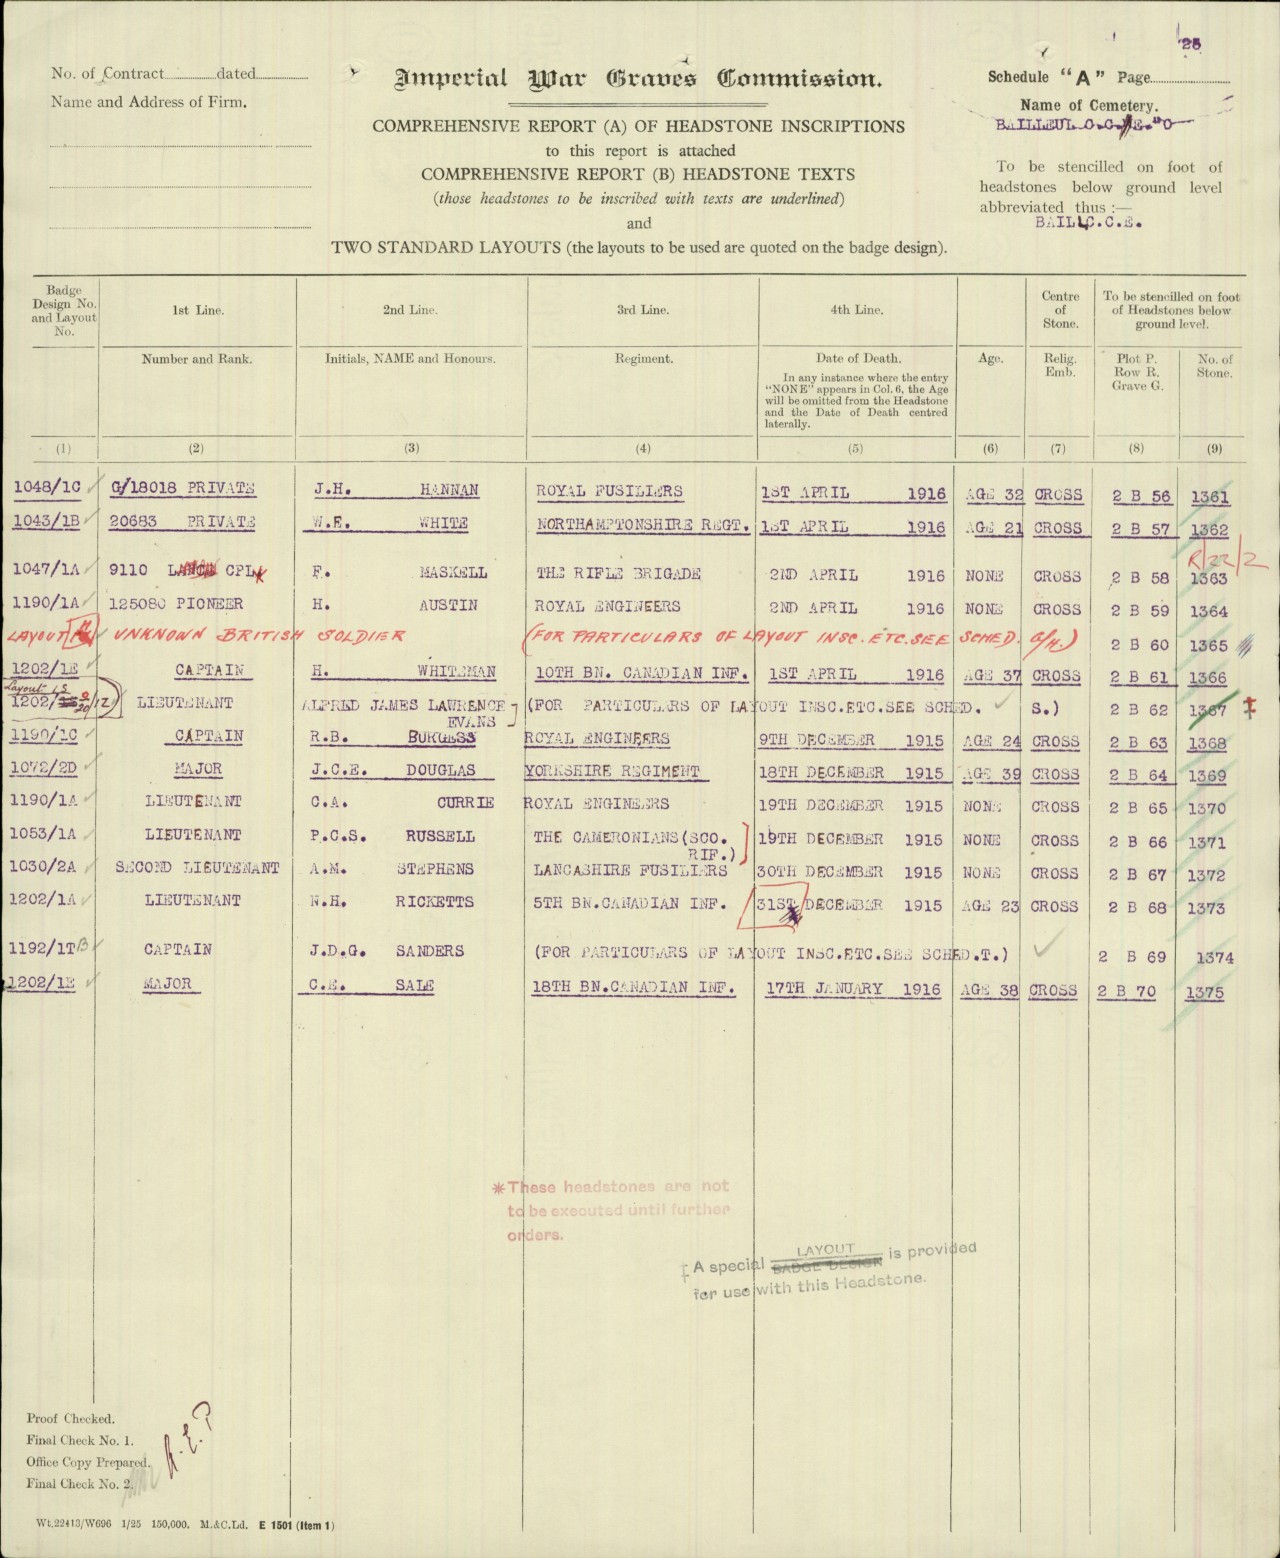 25
No. of Contract dated
Imperial War Graves Commission.
Schedule "A" Page
Name and Address of Firm.
Name of Cemetery.
COMPREHENSIVE REPORT (A) OF HEADSTONE INSCRIPTIONS
BAILLEUL C.C.
to this report is attached
COMPREHENSIVE REPORT (B) HEADSTONE TEXTS
(those headstones to be inscribed with texts are underlined)
and
TWO STANDARD LAYOUTS (the layouts to be used are quoted on the badge design).
To be stencilled on foot of
headstones below ground level
abbreviated thus :—
BAILL.C.C.E.
Badge Design No. and Layout No. 1st Line. 2nd Line. 3rd Line. 4th Line. Centre of Stone. To be stencilled on foot of Headstones below ground level.
Number and Rank. Initials, NAME and Honours. Regiment. Date of Death. Age. Relig. Emb. Plot P. Row R. Grave G. No. of Stone.
In any instance where the entry
"NONE" appears in Col. 6, the Age
will be omitted from the Headstone
and the Date of Death centred
laterally.
(1) (2) (3) (4) (5) (6) (7) (8) (9)
1048/1C G/18018 PRIVATE J.H. HANNAN ROYAL FUSILIERS 1ST APRIL 1916 AGE 32 CROSS 2 B 56 1361
1043/1B 20683 PRIVATE W.E. WHITE NORTHAMPTONSHIRE REGT. 1ST APRIL 1916 AGE 21 CROSS 2 B 57 1362
R/22/2
1047/1A 9110 LANCE CPL F. MASKELL THE RIFLE BRIGADE 2ND APRIL 1916 NONE CROSS 2 B 58 1363
1190/1A 125080 PIONEER H. AUSTIN ROYAL ENGINEERS 2ND APRIL 1916 NONE CROSS 2 B 59 1364
LAYOUT UNKNOWN BRITISH SOLDIER (FOR PARTICULARS OF LAYOUT INSC. ETC. SEE SCHED. G/H.) 2 B 60 1365
1202/1E CAPTAIN H. WHITEMAN 10TH BN. CANADIAN INF. 1ST APRIL 1916 AGE 37 CROSS 2 B 61 1366
Layout
1202/ LIEUTENANT ALFRED JAMES LAWRENCE (FOR PARTICULARS OF LAYOUT INSC.ETC.SEE SCHED. S.) 2 B 62 1367 ‡
EVANS
1190/1C CAPTAIN R.B. BURGESS ROYAL ENGINEERS 9TH DECEMBER 1915 AGE 24 CROSS 2 B 63 1368
1072/2D MAJOR J.C.E. DOUGLAS YORKSHIRE REGIMENT 18TH DECEMBER 1915 AGE 39 CROSS 2 B 64 1369
1190/1A LIEUTENANT C.A. CURRIE ROYAL ENGINEERS 19TH DECEMBER 1915 NONE CROSS 2 B 65 1370
1053/1A LIEUTENANT P.C.S. RUSSELL THE CAMERONIANS(SCO. 19TH DECEMBER 1915 NONE CROSS 2 B 66 1371
RIF.)
1030/2A SECOND LIEUTENANT A.M. STEPHENS LANCASHIRE FUSILIERS 30TH DECEMBER 1915 NONE CROSS 2 B 67 1372
1202/1A LIEUTENANT N.H. RICKETTS 5TH BN.CANADIAN INF. 31ST DECEMBER 1915 AGE 23 CROSS 2 B 68 1373
1192/1TB CAPTAIN J.D.G. SANDERS (FOR PARTICULARS OF LAYOUT INSC.ETC.SEE SCHED.T.) 2 B 69 1374
1202/1E MAJOR C.E. SALE 18TH BN.CANADIAN INF. 17TH JANUARY 1916 AGE 38 CROSS 2 B 70 1375
*These headstones are not
to be executed until further
orders.
‡A special LAYOUT BADGE DESIGN is provided
for use with this Headstone.
Proof Checked.
Final Check No. 1.
Office Copy Prepared.
Final Check No. 2.
Wt.22413/W696 1/25 150,000. M.&C.Ld. E 1501 (Item 1)